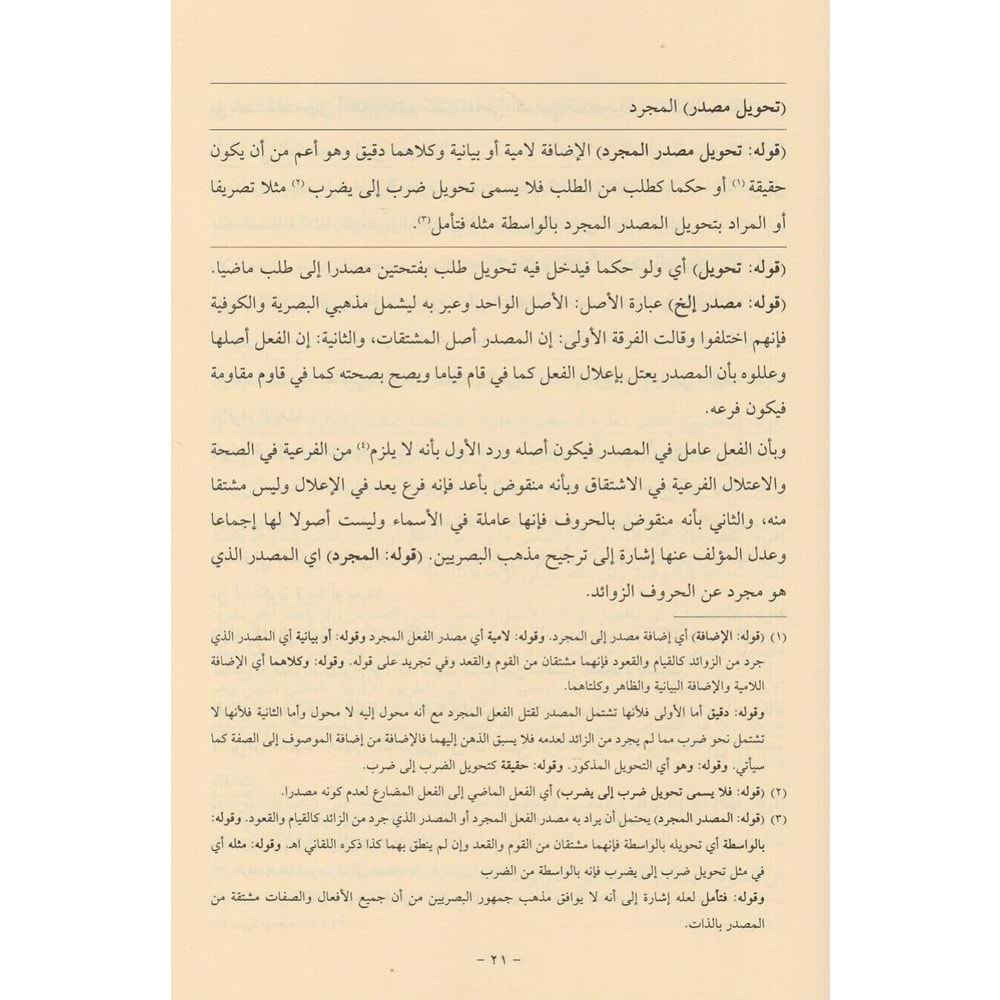 (تحويل مصدر) المجرد
(قوله: تحويل مصدر المجرد) الإضافة لامية أو بيانية وكلاهما دقيق وهو أعم من أن يكون
حقيقة (١) أو حكما كطلب من الطلب فلا يسمى تحويل ضرب إلى يضرب (٢) مثلا تصريفا
أو المراد بتحويل المصدر المجرد بالواسطة مثله فتأمل (٣).
(قوله: تحويل) أي ولو حكما فيدخل فيه تحويل طلب بفتحتين مصدرا إلى طلب ماضيا.
(قوله: مصدر إلخ) عبارة الأصل: الأصل الواحد وعبر به ليشمل مذهبي البصرية والكوفية
فإنهم اختلفوا وقالت الفرقة الأولى: إن المصدر أصل المشتقات، والثانية: إن الفعل أصلها
وعللوه بأن المصدر يعتل بإعلال الفعل كما في قام قياما ويصح بصحته كما في قاوم مقاومة
فيكون فرعه.
وبأن الفعل عامل في المصدر فيكون أصله ورد الأول بأنه لا يلزم (٤) من الفرعية في الصحة
والاعتلال الفرعية في الاشتقاق وبأنه منقوض بأعد فإنه فرع يعد في الإعلال وليس مشتقا
منه، والثاني بأنه منقوض بالحروف فإنها عاملة في الأسماء وليست أصولا لها إجماعا
وعدل المؤلف عنها إشارة إلى ترجيح مذهب البصريين. (قوله: المجرد) اي المصدر الذي
هو مجرد عن الحروف الزوائد.
(١) (قوله: الإضافة) أي إضافة مصدر إلى المجرد. وقوله: لامية أي مصدر الفعل المجرد وقوله: أو بيانية أي المصدر الذي
جرد من الزوائد كالقيام والقعود فإنهما مشتقان من القوم والقعد وفي تجريد على قوله. وقوله: وكلاهما أي الإضافة
اللامية والإضافة البيانية والظاهر وكلتاهما.
وقوله: دقيق أما الأولى فلأنها تشتمل المصدر لقتل الفعل المجرد مع أنه محول إليه لا محول وأما الثانية فلأنها لا
تشتمل نحو ضرب مما لم يجرد من الزائد لعدمه فلا يسبق الذهن إليهما فالإضافة من إضافة الموصوف إلى الصفة كما
سيأتي. وقوله: وهو أي التحويل المذكور. وقوله: حقيقة كتحويل الضرب إلى ضرب.
(٢) (قوله: فلا يسمى تحويل ضرب إلى يضرب) أي الفعل الماضي إلى الفعل المضارع لعدم كونه مصدرا.
(٣) (قوله: المصدر المجرد) يحتمل أن يراد به مصدر الفعل المجرد أو المصدر الذي جرد من الزائد كالقيام والقعود. وقوله:
بالواسطة أي تحويله بالواسطة فإنهما مشتقان من القوم والقعد وإن لم ينطق بهما كذا ذكره اللقاني اهـ. وقوله: مثله أي
في مثل تحويل ضرب إلى يضرب فإنه بالواسطة من الضرب
وقوله: فتأمل لعله إشارة إلى أنه لا يوافق مذهب جمهور البصريين من أن جميع الأفعال والصفات مشتقة من
المصدر بالذات.
- ٢١ -